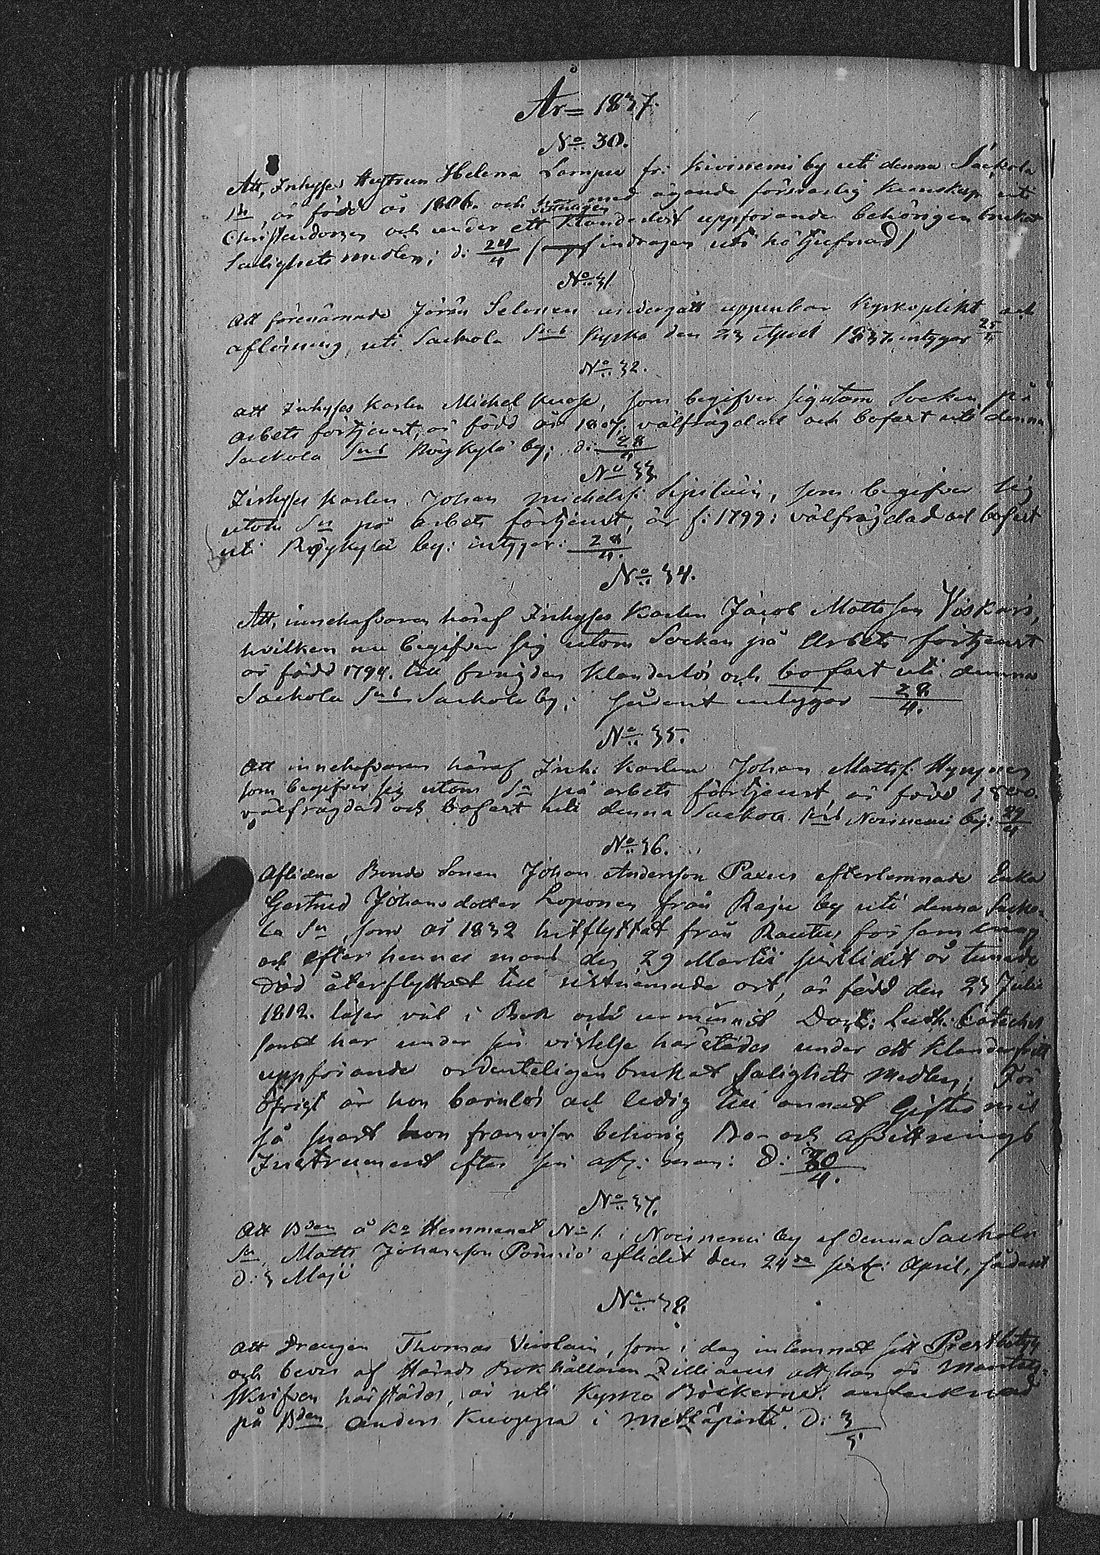 År 1837.
No 30.
Att, Inhyses Hustrun Helena Lampu fr: Kiviniemi by uti denna Sackola
Sn är född år 1806. och med ägande försvarlig Kunskap uti
Christendomen och under ett klanderlöst uppförande behörigen brukat
Salighets medlen; d: 24/4 (indragen uti häftefnad)
No 31
Att förenämnde Jöran Selonen undergått uppenbar Kyrkoplikt och
aflösning, uti Sackola Sns Kyrka den 23 April 1837. intygar 25/4
No 32.
Att Inhyses Karlen Michel Kuosa, som begifver sig utom Socken på
arbets förtjenst, är född år 1807. välfrägdad och bofast uti denna
Sackola Sns Röykylä by; d: 28/4
No 33
Inhyses Karlen Johan Michelss: Sipiläin, som begifver sig
utom Sn på arbets förtjenst, är f: 1799: välfrägdad och bofast
uti Röykylä by: intygar: 28/4.
No 34.
Att, innehafvaren häraf Inhyses Karlen Jacob Mattsson Viskari,
hvilken nu begifver sig utom Socken på Arbets förtjenst
är född 1794. till frägden klanderlös och bofast uti denna
Sackola Sns Sackola by; sådant intygar 28/4.
No 35.
Att innehafvaren häraf Inh: Karlen Johan Mattss: Hynynen
som begifver sig utom Sn på arbets förtjenst är född 1800.
välfrägdad och bofast uti denna Sackola Sns Noisniemi by: 29/4
No 36.
Aflidne Bonde Sonen Johan Andersson Paxus efterlemnade Enka
Gertrud Johansdotter Loponen från Raju by uti denna Sacko-
la Sn, som år 1832 hitflyttat från Rautus församling
och efter hennes mans den 29 Martii sistlidit år timade
död återflyttat till sistnämnde ort, är född den 23 Julii
1812. läser väl i Bok och Luth: Cateches
samt har under sin vistelse härstädes under ett klanderfritt
uppförande ordenteligen brukat Salighets medlen; För
öfrigt är hon barnlös och ledig till annat Giftermål
så snart hon framviser behörig Bo- och afvittnings
Instrument efter sin afl: man: d: 30/4.
No 37.
Att Bden å Ko Hemmanet No 1. i Noisniemi by af denna Sackola
Sn, Matts Johansson Pönniö aflidit den 24de sistl: April, sådant
d: 3 Maji
No 38
Att Drengen Thomas Virolain, som i dag inlemnat sitt Prestbetyg
och bevis af Härads Bokhållaren Zilliacus att han är Mantals-
skrifven härstädes, är uti Kyrko Böckerne antecknad
på Bden Anders Kuoppa i Metsäpirtti. D: 3/5